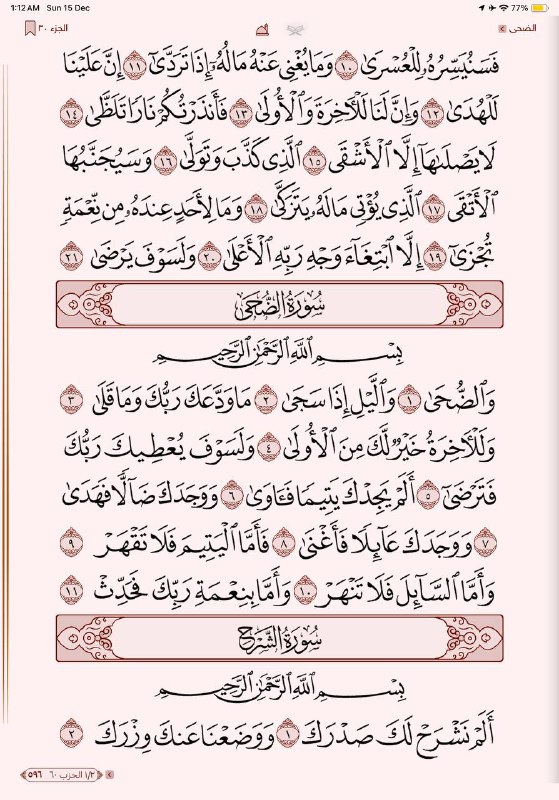 1:12 AM Sun 15 Dec 77%
الضحى الجزء ٣٠
فَسَنُيَسِّرُهُۥ لِلْعُسْرَىٰ ١٠ وَمَا يُغْنِى عَنْهُ مَالُهُۥٓ إِذَا تَرَدَّىٰٓ ١١ إِنَّ عَلَيْنَا
لَلْهُدَىٰ ١٢ وَإِنَّ لَنَا لَلْـَٔاخِرَةَ وَٱلْأُولَىٰ ١٣ فَأَنذَرْتُكُمْ نَارًا تَلَظَّىٰ ١٤
لَا يَصْلَىٰهَآ إِلَّا ٱلْأَشْقَى ١٥ ٱلَّذِى كَذَّبَ وَتَوَلَّىٰ ١٦ وَسَيُجَنَّبُهَا
ٱلْأَتْقَى ١٧ ٱلَّذِى يُؤْتِى مَالَهُۥ يَتَزَكَّىٰ ١٨ وَمَا لِأَحَدٍ عِندَهُۥ مِن نِّعْمَةٍ
تُجْزَىٰٓ ١٩ إِلَّا ٱبْتِغَآءَ وَجْهِ رَبِّهِ ٱلْأَعْلَىٰ ٢٠ وَلَسَوْفَ يَرْضَىٰ ٢١
سُورَةُ الضُّحَىٰ
بِسْمِ ٱللَّهِ ٱلرَّحْمَٰنِ ٱلرَّحِيمِ
وَٱلضُّحَىٰ ١ وَٱلَّيْلِ إِذَا سَجَىٰ ٢ مَا وَدَّعَكَ رَبُّكَ وَمَا قَلَىٰ ٣
وَلَلْـَٔاخِرَةُ خَيْرٌ لَّكَ مِنَ ٱلْأُولَىٰ ٤ وَلَسَوْفَ يُعْطِيكَ رَبُّكَ
فَتَرْضَىٰٓ ٥ أَلَمْ يَجِدْكَ يَتِيمًا فَـَٔاوَىٰ ٦ وَوَجَدَكَ ضَآلًّا فَهَدَىٰ
٧ وَوَجَدَكَ عَآئِلًا فَأَغْنَىٰ ٨ فَأَمَّا ٱلْيَتِيمَ فَلَا تَقْهَرْ ٩
وَأَمَّا ٱلسَّآئِلَ فَلَا تَنْهَرْ ١٠ وَأَمَّا بِنِعْمَةِ رَبِّكَ فَحَدِّثْ ١١
سُورَةُ الشَّرْحِ
بِسْمِ ٱللَّهِ ٱلرَّحْمَٰنِ ٱلرَّحِيمِ
أَلَمْ نَشْرَحْ لَكَ صَدْرَكَ ١ وَوَضَعْنَا عَنكَ وِزْرَكَ ٢
١/٢ الحزب ٦٠ ٥٩٦